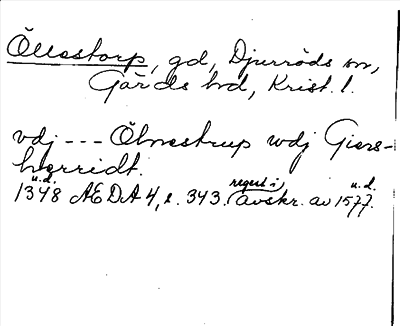 Öllestorp, gd, Djurröds sn,
Gärds hd, Krist. l.
vdj --- Ölmestrup wdj Giers-
herridt.
u.d.
1348 AEDA 4, s. 343. regest i avskr. av 1577. u.d.